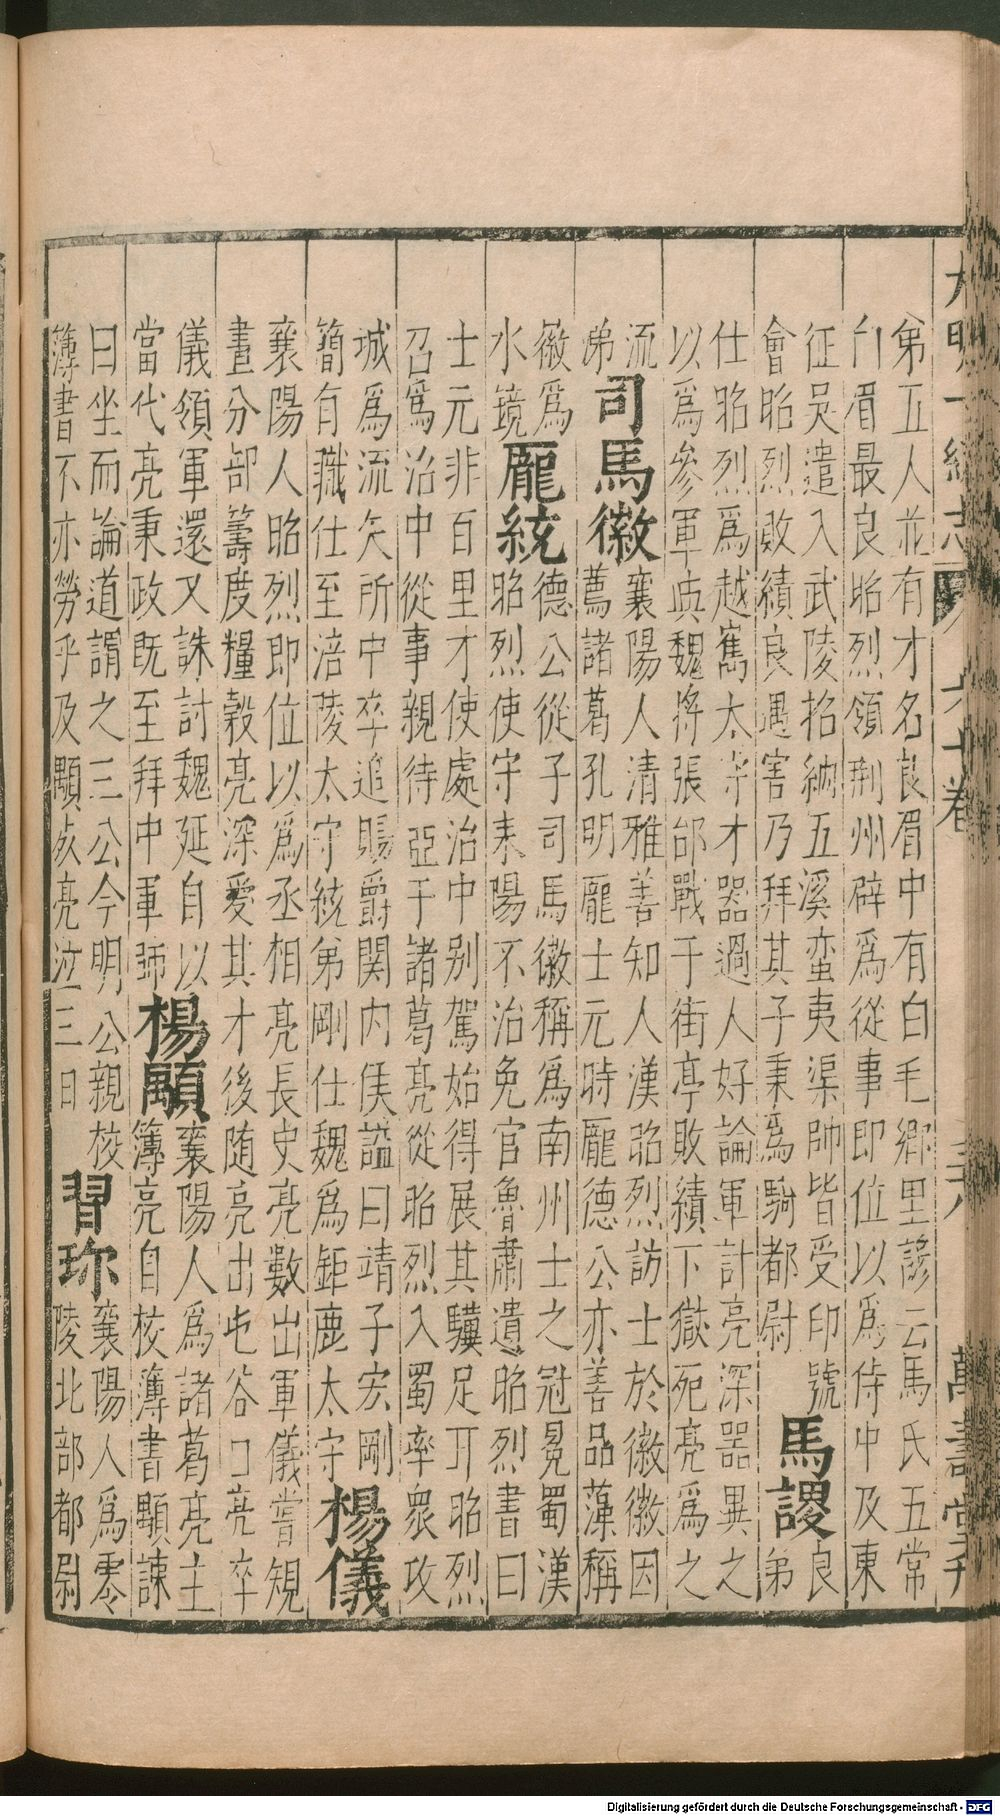 弟五人並有才名良眉中有白毛鄉里諺云馬氏五常
白眉最良昭烈領荆州辟爲從事即位以爲侍中及東
征吳遣入武陵招納五溪蠻夷渠帥皆受印號
會昭烈敗績良遇害乃拜其子秉爲騎都尉
馬謖
良
弟
仕昭烈爲越巂太守才器過人好論軍計亮深器異之
以爲參軍與魏將張郃戰于街亭敗績下獄死亮爲之
流
涕
司馬徽
襄陽人清雅善知人漢昭烈訪士於徽徽因
薦諸葛孔明龐士元時龐德公亦善品藻稱
徽爲
水鏡
龐統
德公從子司馬徽稱爲南州士之冠冕蜀漢
昭烈使守耒陽不治免官魯肅遺昭烈書曰
士元非百里才使處治中别駕始得展其驥足耳昭烈
召爲治中從事親待亞于諸葛亮從昭烈入蜀率衆攻
城爲流矢所中卒追賜爵関内侯諡曰靖子宏剛
簡有職仕至涪陵太守統弟剛仕魏爲鉅鹿太守
楊儀
襄陽人昭烈即位以爲丞相亮長史亮數出軍儀嘗規
畫分部籌度糧穀亮深愛其才後随亮出屯谷口亮卒
儀領軍還又誅討魏延自以
當代亮秉政既至拜中軍師
楊顒
襄陽人爲諸葛亮主
簿亮自校薄書顒諫
曰坐而論道謂之三公今明公親校
簿書不亦勞乎及顒歿亮泣三日
習珍
襄陽人爲零
陵北部都尉
大明一統志
六十卷
三十八
萬壽堂刊
Digitalisierung gefördert durch die Deutsche Forschungsgemeinschaft - DFG